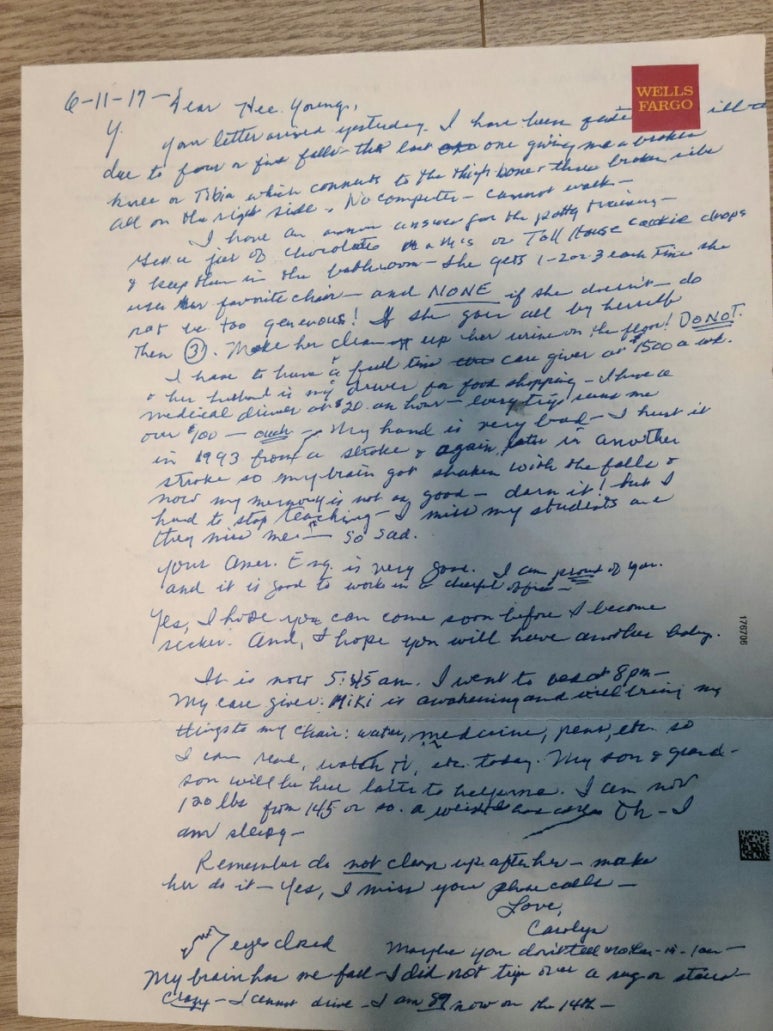 WELLS
FARGO
6-11-17 - Dear Hee Young,
Your letter arrived yesterday. I have been quite ill
due to four or five falls the last one giving me a broken
knee or Tibia which connects to the thigh bone + three broken ribs
all on the right side. No computer - cannot walk -
I have an answer for the potty training -
Get a jar of chocolate M + M's or Toll House cookie drops
& keep them in the bathroom - she gets 1-2 or 3 each time she
uses her favorite chair - and NONE if she doesn't - do
not be too generous! If she goes all by herself
then 3. Make her clean up her urine on the floor! DO NOT.
I have to have a full time care giver at $1500 a wk.
& her husband is my driver for food shopping - I have a
medical driver at $20 an hour - every trip runs me
over $100 - ouch - My hand is very bad - I hurt it
in 1993 from a stroke & again later in another
stroke so my brain got shaken with the falls &
now my memory is not as good - darn it! but I
had to stop teaching - I miss my students and
they miss me! - So sad.
Your Amer. Eng. is very good. I am proud of you.
and it is good to work in a cheerful office -
Yes, I hope you can come soon before I become
sicker. And, I hope you will have another baby.
It is now 5:45 am. I went to bed at 8 pm -
My care giver Miki is awakening and will bring my
things to my chair: water, medicine, pens, etc. so
I can read, watch TV, etc. today. My son & grand-
son will be here later to help me. I am now
120 lbs from 145 or so. Oh - I
am sleepy -
Remember do not clean up after her - make
her do it - Yes, I miss your phone calls -
Love,
Carolyn
eyes closed Maybe you
My brain has me fall - I did not trip over a rug or stairs
Crazy - I cannot drive - I am 89 now on the 14th -
176706